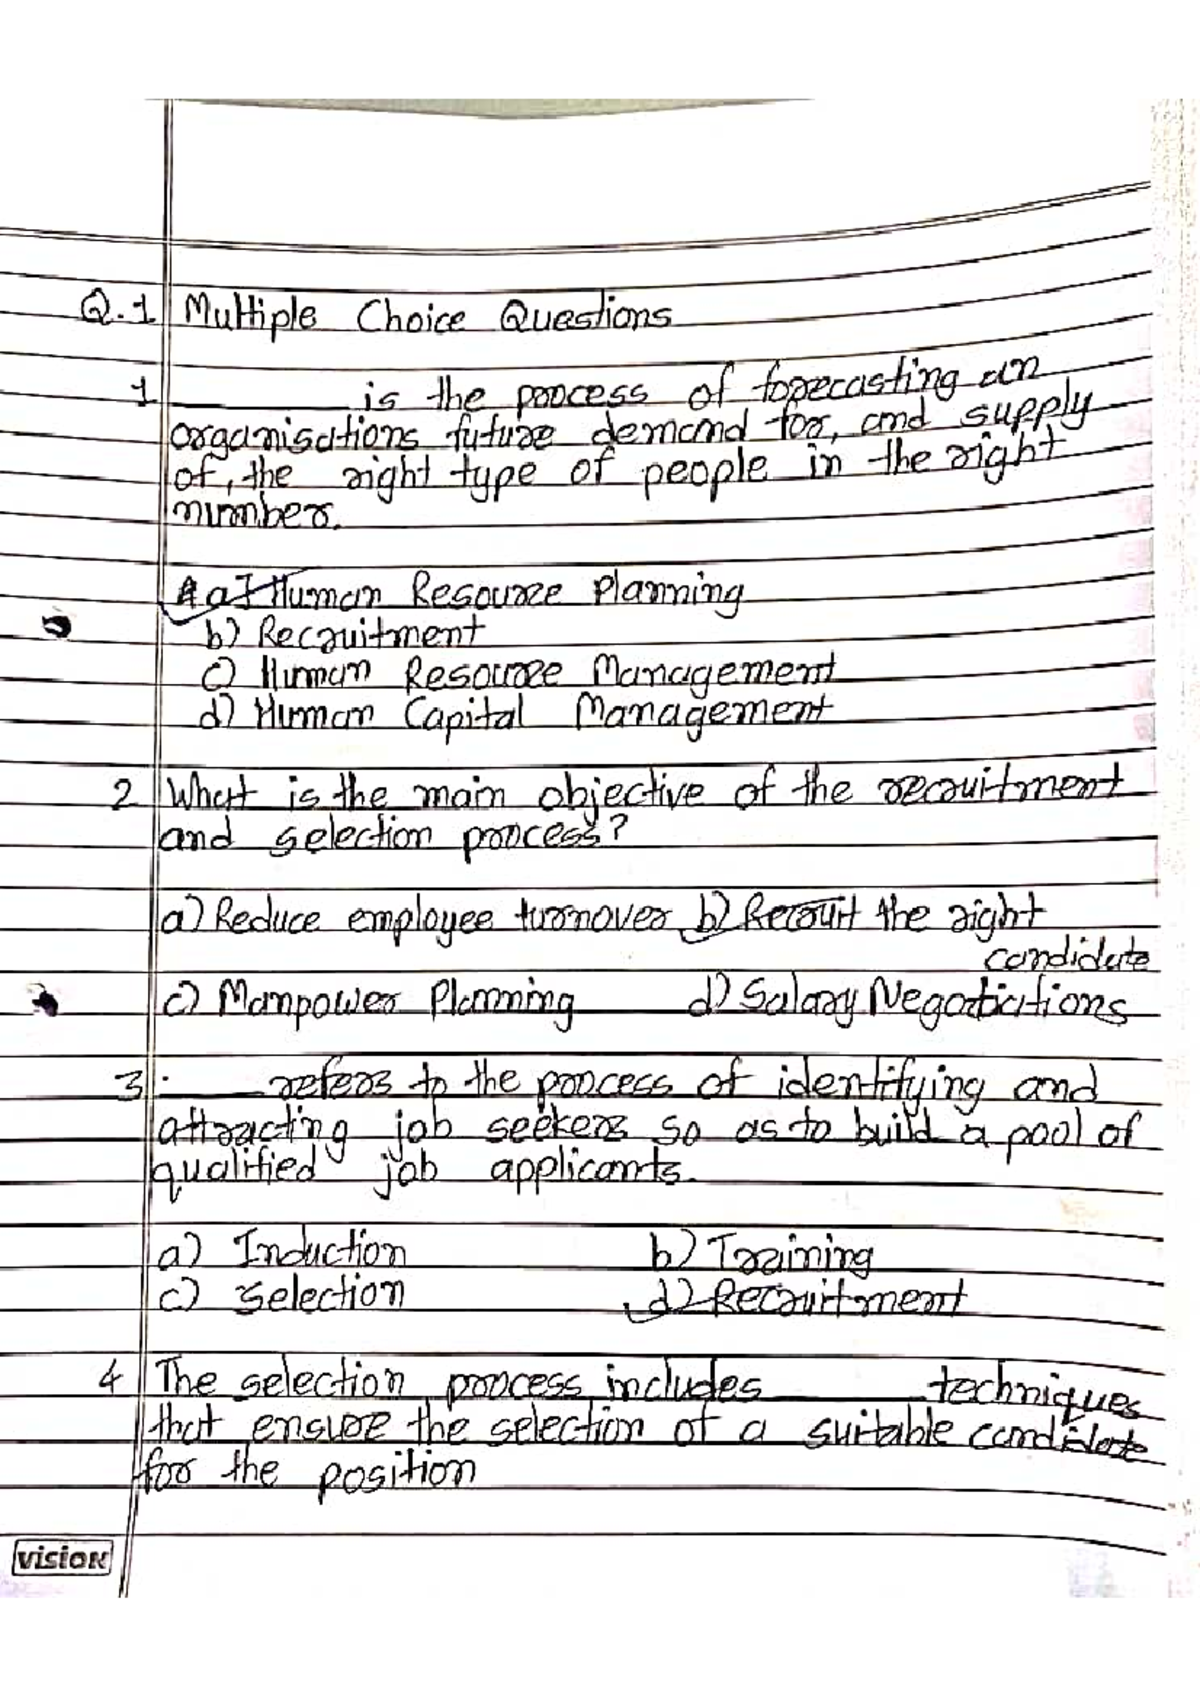 Q.1 Multiple Choice Questions
1 ________ is the process of forecasting an
organisations future demand for, and supply
of, the right type of people in the right
number.
a] Human Resource Planning
b) Recruitment
c) Human Resource Management
d) Human Capital Management
2 What is the main objective of the recruitment
and selection process?
a) Reduce employee turnover b) Recruit the right
candidate
c) Manpower Planning d) Salary Negotiations
3. ______ refers to the process of identifying and
attracting job seekers so as to build a pool of
qualified job applicants.
a) Induction b) Training
c) Selection d) Recruitment
4 The selection process includes ________ techniques
that ensure the selection of a suitable candidate
for the position
vision